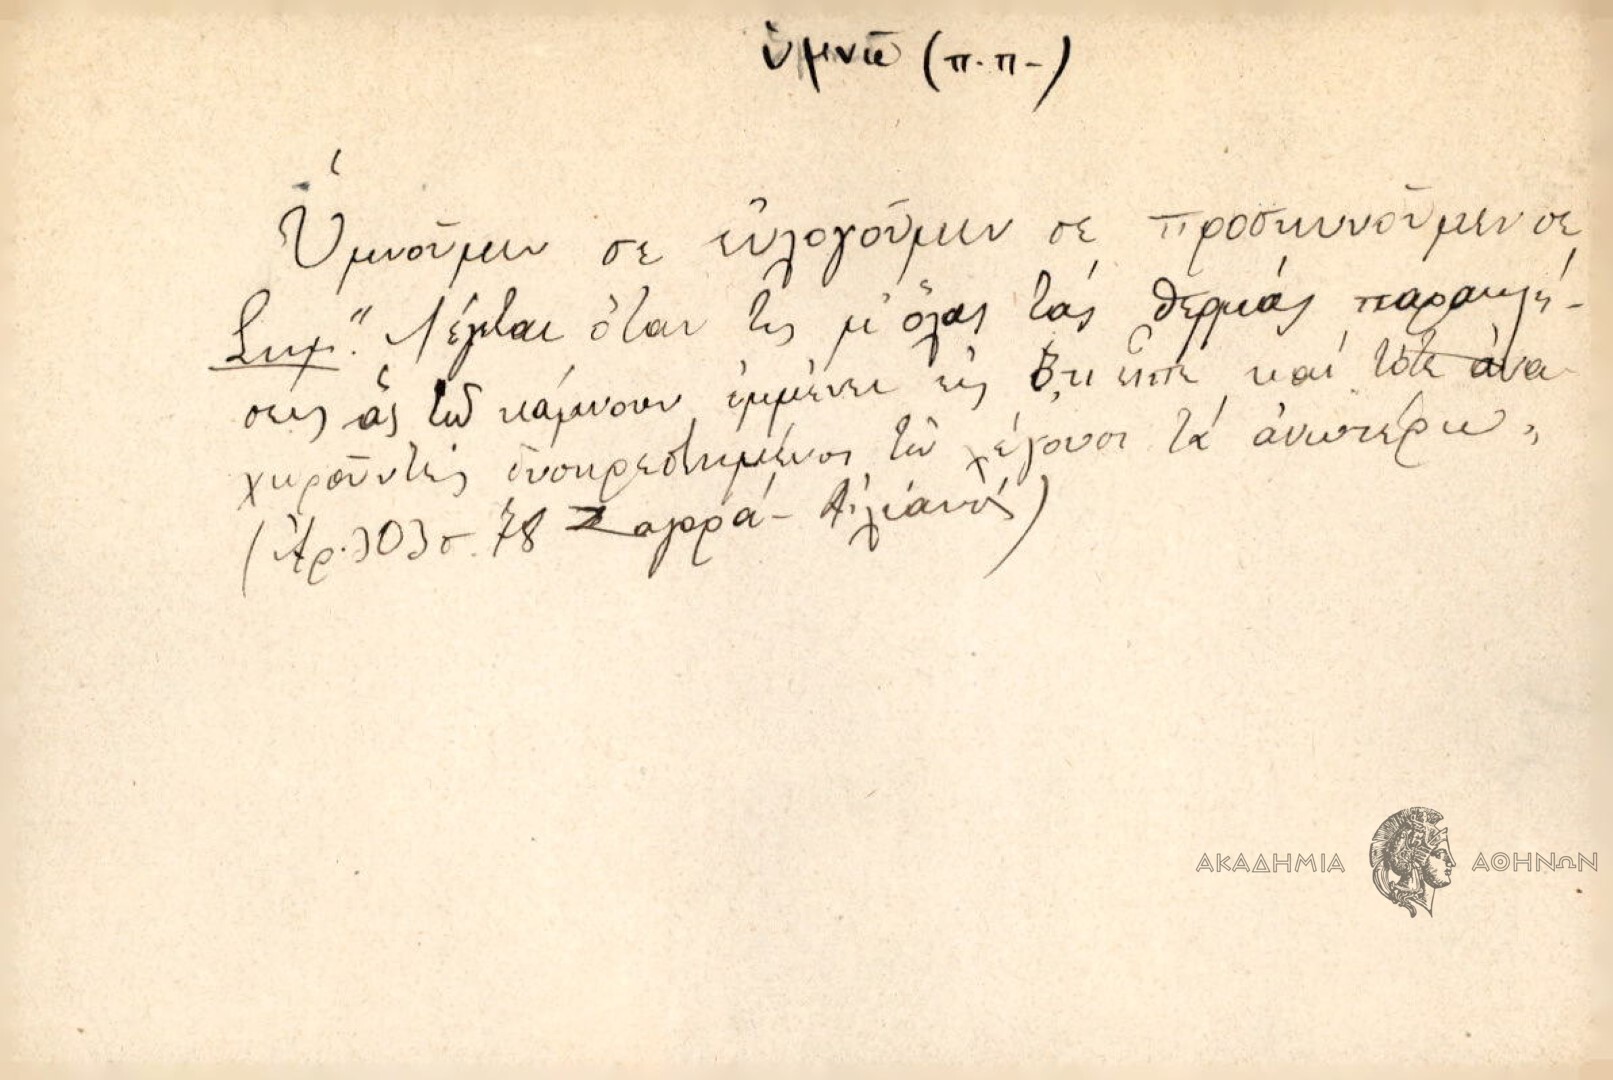 ὑμνῶ (π.π-)
Ὑμνοῦμεν σε εὐλογοῦμεν σε προσκυνοῦμεν σε
Σημ." Λέγεται ὅταν τις μ' ὅλας τάς θερμάς παρακλή-
σεις ἅς τοῦ κάμνουν ἐμμένει εἰς ὅ,τι εἶπε καί τότε ἀνα-
χωροῦντες δυσηρεστημένοι τῷ λέγουσι τά ἀνωτέρω „
(Ἀρ. 303 σ. 78 Ζαγορά- Αἰλιανός)
ΑΚΑΔΗΜΙΑ ΑΘΗΝΩΝ